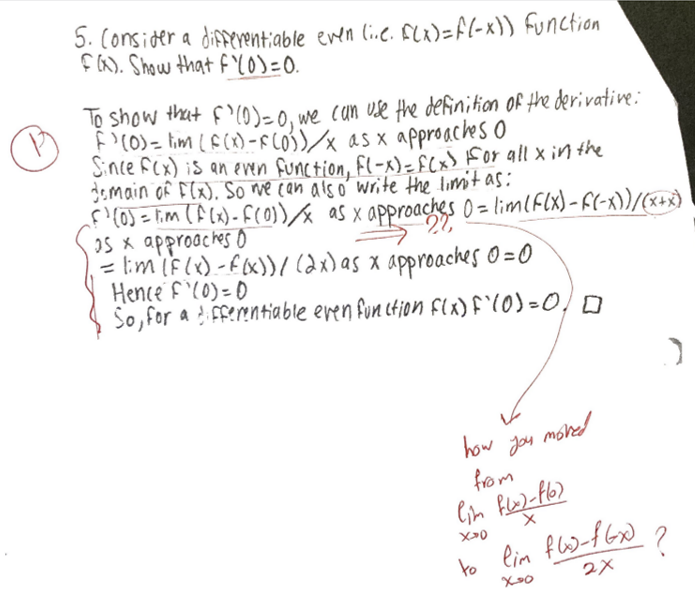 5. Consider a differentiable even (i.e. f(x)=f(-x)) function
f(x). Show that f'(0)=0.
To show that f'(0)=0, we can use the definition of the derivative:
f'(0)= lim (f(x)-f(0))/x as x approaches 0
Since f(x) is an even function, f(-x)=f(x) for all x in the
domain of f(x). So we can also write the limit as:
f'(0)=lim (f(x)-f(0))/x as x approaches 0 = lim(f(x)-f(-x))/(x+x)
??
as x approaches 0
= lim (f(x)-f(x))/(2x) as x approaches 0=0
Hence f'(0)=0
So, for a differentiable even function f(x) f'(0)=0. □
how you moved
from
lim f(x)-f(0)
x→0 x
to lim f(x)-f(-x) ?
x→0 2x